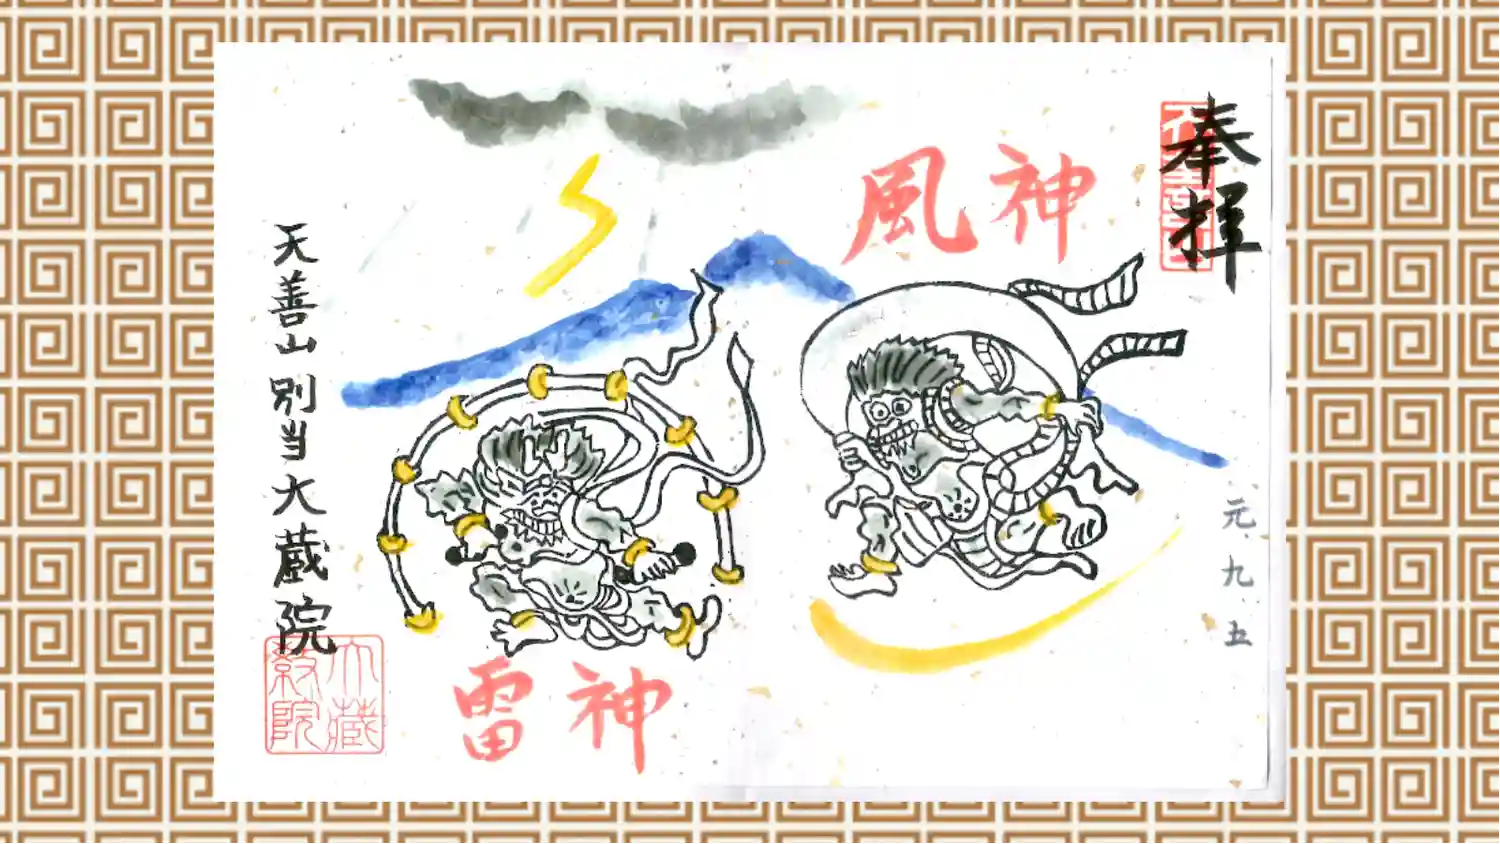 奉拝
風神
元九五
雷神
天善山別当大蔵院